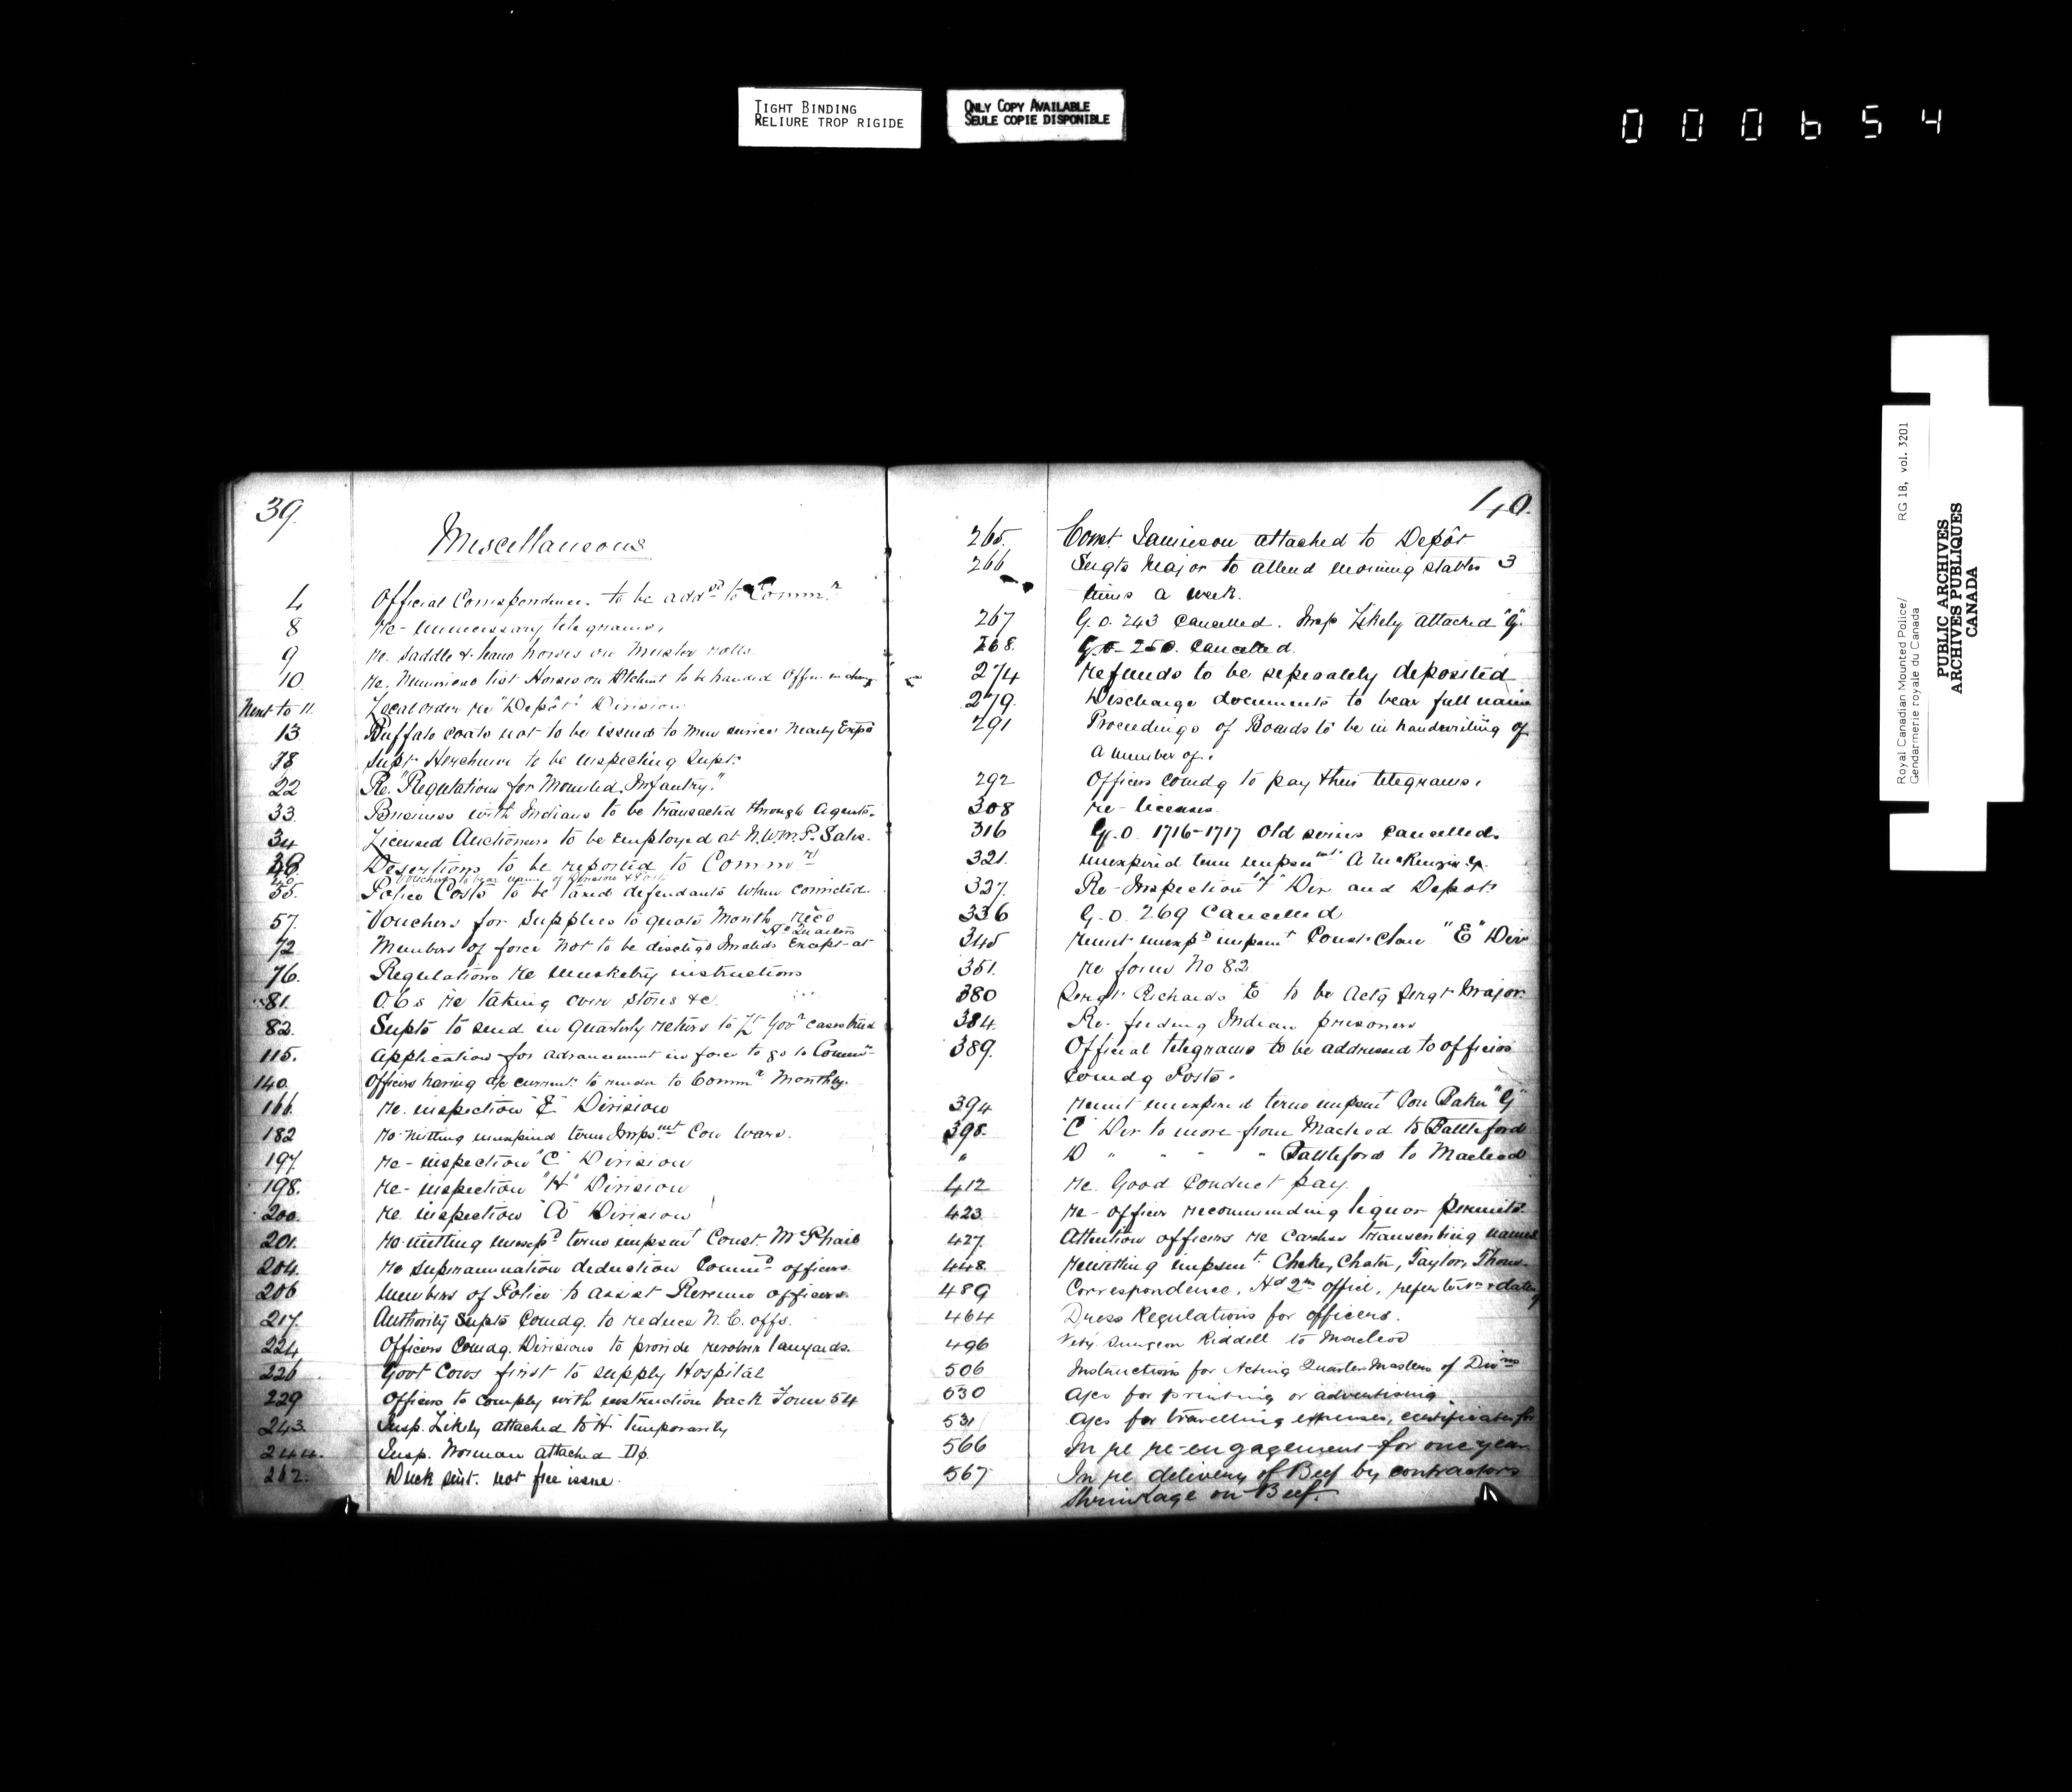 TIGHT BINDING
RELIURE TROP RIGIDE
ONLY COPY AVAILABLE
SEULE COPIE DISPONIBLE
000654
39.
Miscellaneous
4 Official Correspondence to be addd to Commr
8 Re- unnecessary telegrams.
9 Re. Saddle & team horses on Muster rolls
10. Re. Numerical list Horses on to be handed Officer in charge
Next to 11. Local order re "Depôt" Division
13 Buffalo coats not to be issued to men service nearly Expd
18 Supt Herchmer to be inspecting Supt.
22 Re. "Regulations for Mounted Infantry."
33. Business with Indians to be transacted through Agents.
34 Licensed Auctioneers to be employed at N.W.M.P. Sales.
38. Desertions to be reported to Commr
40 Vouchers to bear name of Division & Post
55. Police Costs to be taxed defendants when convicted.
57. Vouchers for supplies to quote Month recd
Hd Quarters
72 Members of force not to be dischgd Invalids Except at
76. Regulations re musketry instructions
81. O.C.s re taking over stores &c.
82. Supts to send in Quarterly returns to Lt Govr cases tried
115. Application for advancement in force to go to Commr
140. Officers having a/c current to render to Commr Monthly.
166. Re. inspection "E" Division
182 Remitting unexpired term Impsmt Con Ward.
197 Re- inspection "C" Division
198. Re- inspection "H" Division
200. Re. inspection "A" Division
201. Remitting unexpd term impsmt Const. McPhail
204. Re superannuation deduction Commd officers.
206 Members of Police to assist Revenue officers.
217. Authority Supts Comdg. to reduce N.C. offs.
224 Officers Comdg. Divisions to provide revolver lanyards.
226 Govt Cows first to supply Hospital
229 Officers to comply with instruction back Form 54
243. Insp. Likely attached to H temporarily
244. Insp. Norman attached Dp.
262. Duck suit. not free issue.
40.
265. Const. Jamieson attached to Depôt
266 Sergts Major to attend morning stables 3
times a week.
267 G.O. 243 Cancelled. Insp Likely attached "G".
268. G.O. 250. Cancelled.
274 Refunds to be seperately deposited
279. Discharge documents to bear full name
291 Proceedings of Boards to be in handwriting of
a member of.
292 Officers comdg to pay their telegrams.
308 Re- licenses.
316 G.O. 1716-1717 Old series cancelled.
321. Unexpired term impsnmt A McKenzie
327. Re- Inspection "F" Div and Depôt
336 G.O. 269 Cancelled
345 Remit unexpd impsmt Const. "E" Div
351. Re form No 82
380 Sergt Richards "E" to be Actg Sergt Major.
384. Re- feeding Indian prisoners
389. Official telegrams to be addressed to officers
Comdg Posts.
394 Remit unexpired term impsmt Con Baker "G"
398. "C" Div to move from Macleod to Battleford
" D " " " " Battleford to Macleod
412 Re. Good Conduct pay.
423. Re- officers recommending liquor permits.
427. Attention officers re careless transcribing names
448. Remitting impsmt. Cheke, Chater, Taylor,
489 Correspondence, Hd Qrs office, refer to no & date of
464 Dress Regulations for officers.
496 Vety Surgeon Riddell to Macleod
506 Instructions for Acting Quarter Masters of Divns
530 A/cs for printing or advertising
531 A/cs for travelling expenses, certificates for
566 In re re-engagement for one year
567 In re delivery of Beef by contractors
Shrinkage on Beef.
Royal Canadian Mounted Police/ RG 18, vol. 3201
Gendarmerie royale du Canada
PUBLIC ARCHIVES
ARCHIVES PUBLIQUES
CANADA